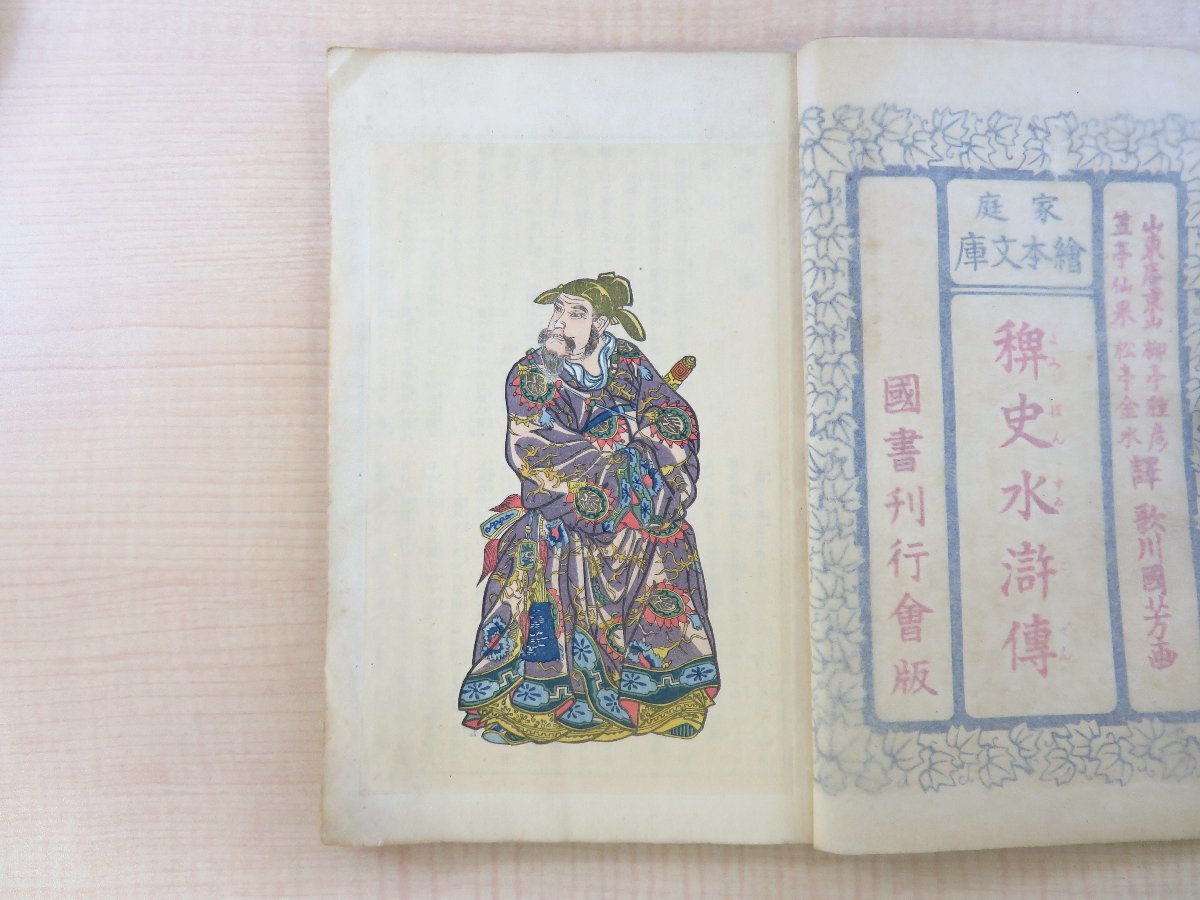 山東庵京山 柳亭種彦
笠亭仙果 松亭金水
譯 歌川國芳画
家庭
繪本文庫
稗史水滸傳
國書刊行會版